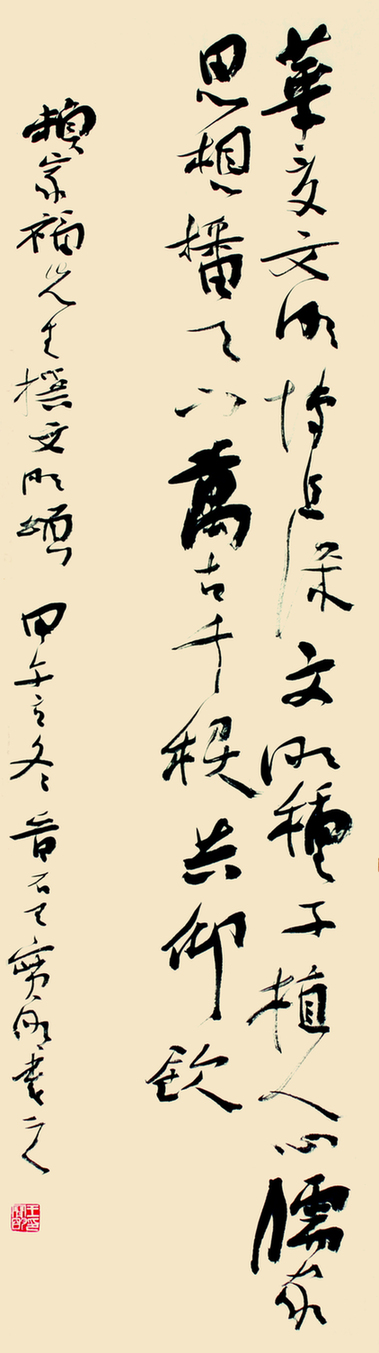 華夏文明博且深文明種子植人心儒家
思想播天下萬古千共仰欽
賴家福先生撰文明頌 甲午冬 晉石寶明書之